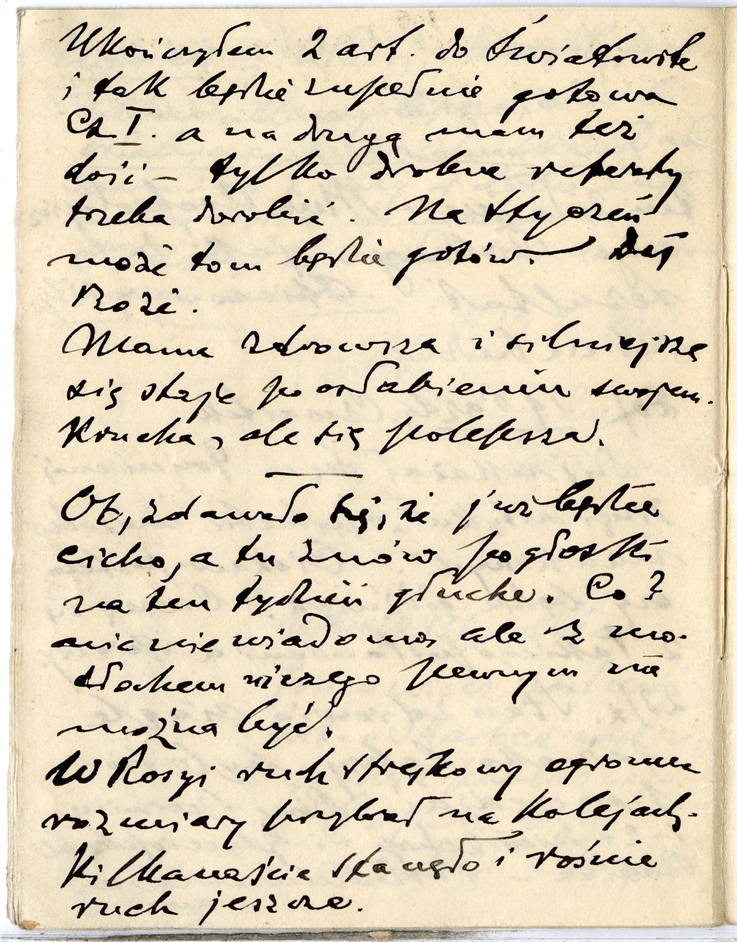 Ukończyłem 2 art. do Światowita
i tak będzie zupełnie gotowa
Cz I. a na drugą mam też
dość – tylko drobne referaty
trzeba dorobić. Na styczeń
może tom będzie gotów. Daj
Boże.
Mama zdrowsza i silniejszą
się staje po osłabieniu swojem.
Krucha, ale się polepsza.
Ot, zdawało się, że już będzie
cicho, a tu znów pogłoski
na ten tydzień głuche. Co?
nic nie wiadomo, ale z mo-
tłochem niczego pewnym nie
można być.
W Rosyi ruch strejkowy ogromne
rozmiary przybrał na kolejach.
Kilkanaście stanęło i rośnie
ruch jeszcze.